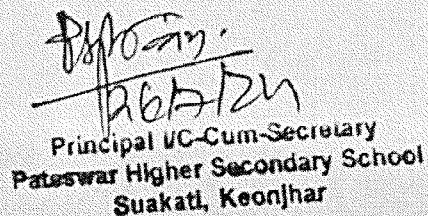 26/7/24
Principal I/C-Cum-Secretary
Pateswar Higher Secondary School
Suakati, Keonjhar